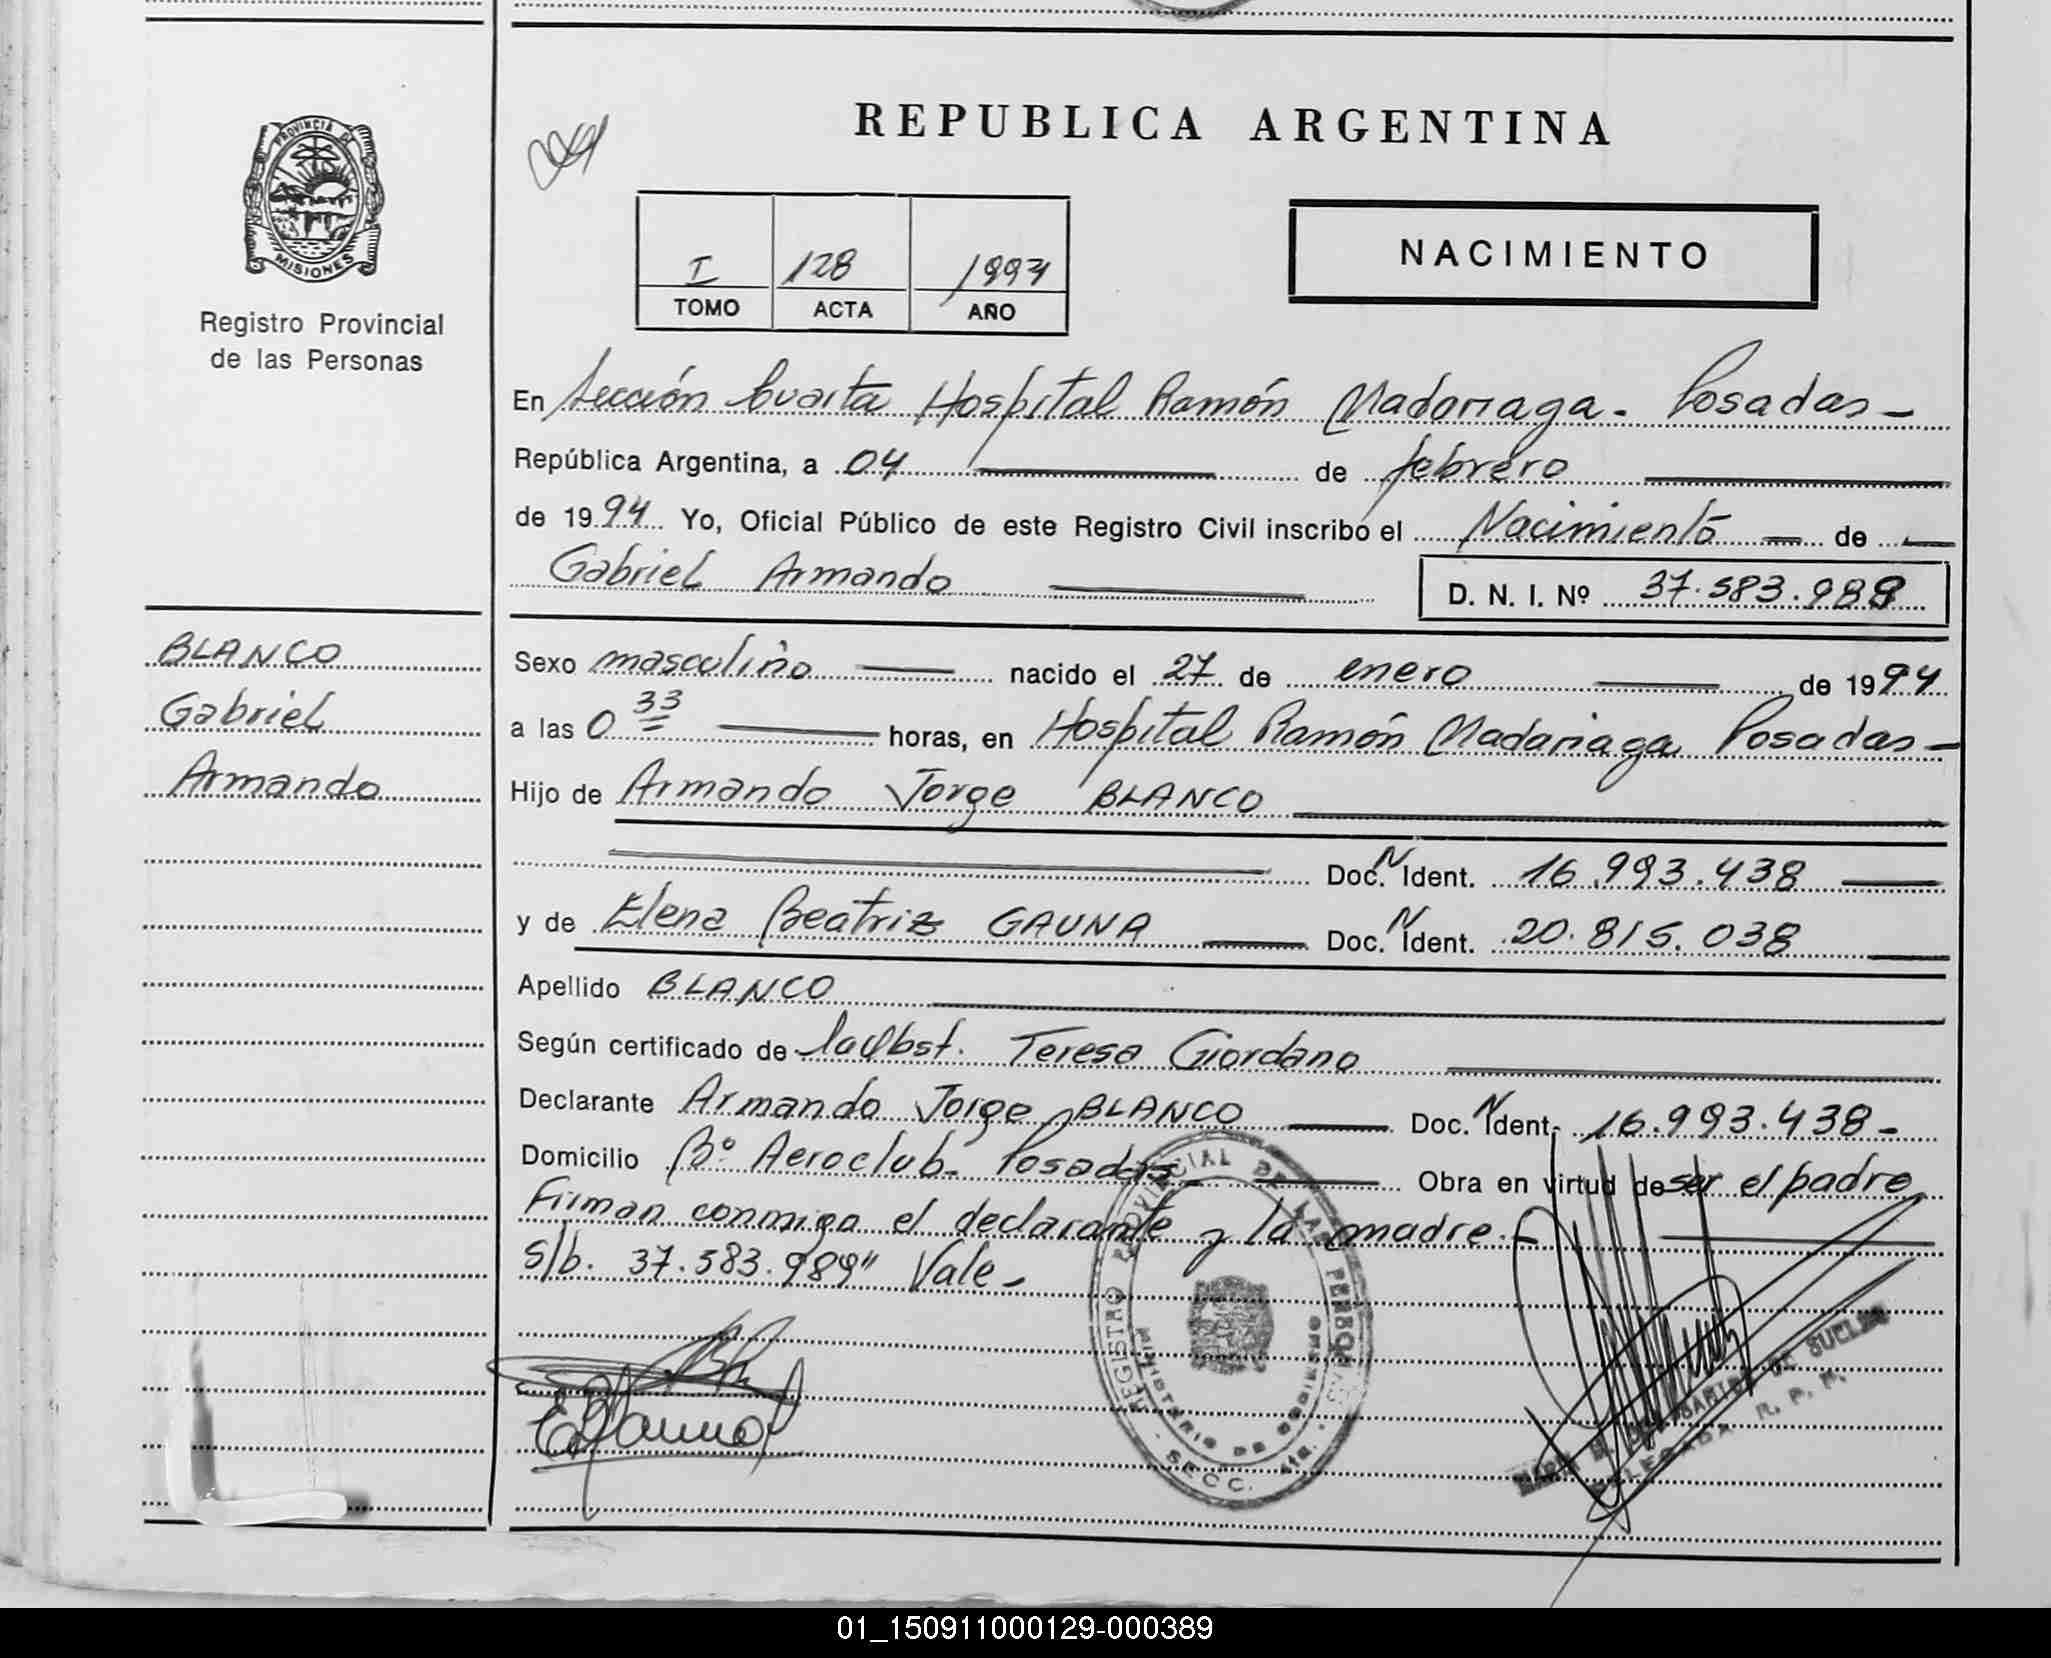 REPUBLICA ARGENTINA
PROVINCIA DE
MISIONES
Registro Provincial
de las Personas
I 128 1994
TOMO ACTA AÑO
NACIMIENTO
En Sección Cuarta Hospital Ramón Madariaga - Posadas -
República Argentina, a 04 de febrero
de 1994 Yo, Oficial Público de este Registro Civil inscribo el Nacimiento de
Gabriel Armando D. N. I. Nº 37.583.989
BLANCO
Gabriel
Armando
Sexo masculino nacido el 27 de enero de 1994
a las 0 33 horas, en Hospital Ramón Madariaga Posadas -
Hijo de Armando Jorge BLANCO
Doc. N Ident. 16.993.438
y de Elena Beatriz GAUNA Doc. N Ident. 20.815.038
Apellido BLANCO
Según certificado de la Obst. Teresa Giordano
Declarante Armando Jorge BLANCO Doc. N Ident. 16.993.438 -
Domicilio Bº Aeroclub - Posadas Obra en virtud de ser el padre
Firman conmigo el declarante y la madre. -
s/b. 37.583.989" Vale -
REGISTRO PROVINCIAL DE LAS PERSONAS
MINISTERIO DE GOBIERNO
SECC. 4ta.
DE SUCLIN
DELEGADA R. P. P.
01_150911000129-000389